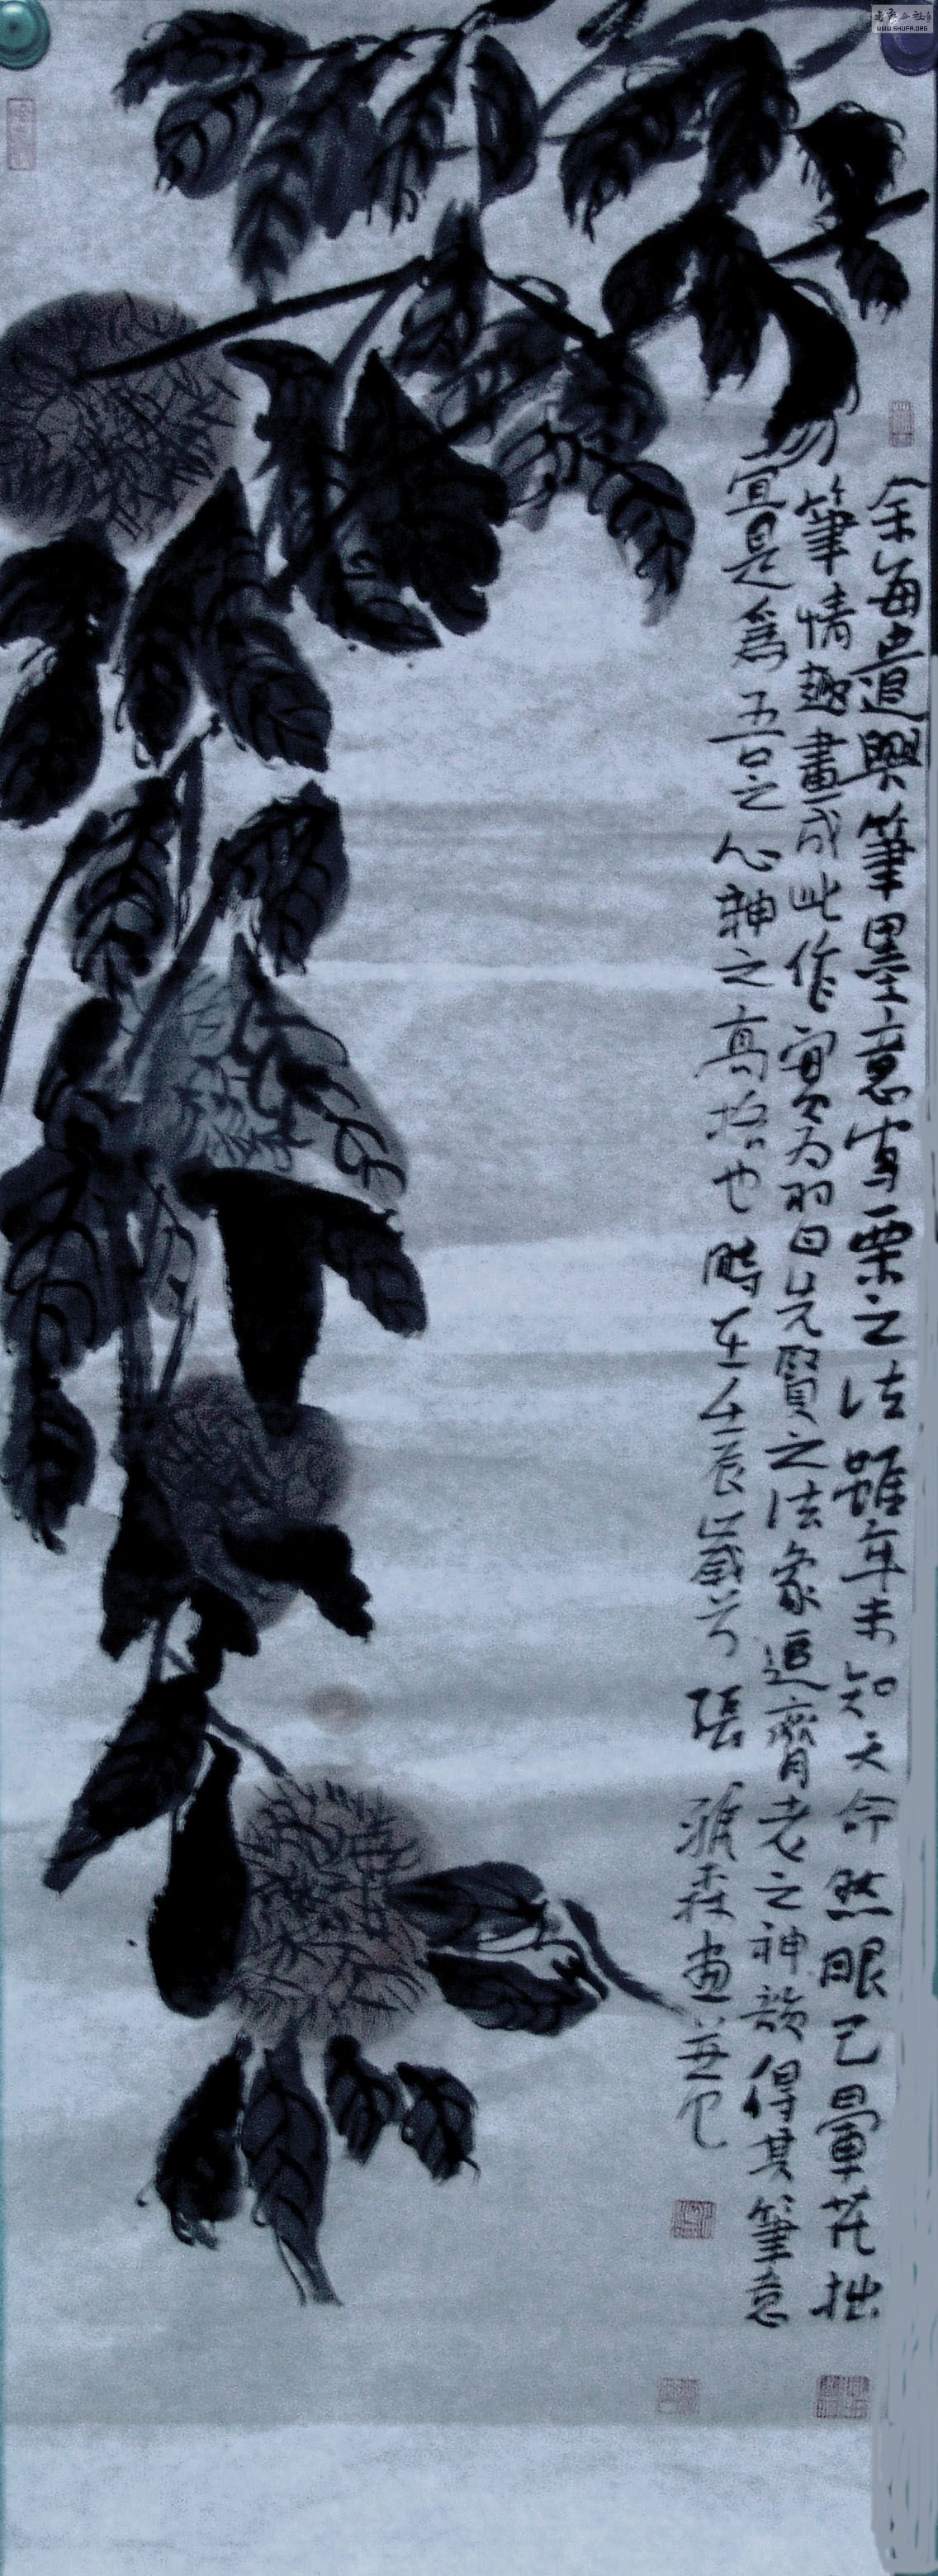 余每遣興筆墨意寫栗之法雖年未知天命然眼已暈花拙
筆情趣畫成此作實為習白先賢之法象追齊老之神韻得其筆意
宜是為吾之心神之高也時在壬辰歲 張 森畫並記
WWW.SHUFA.ORG